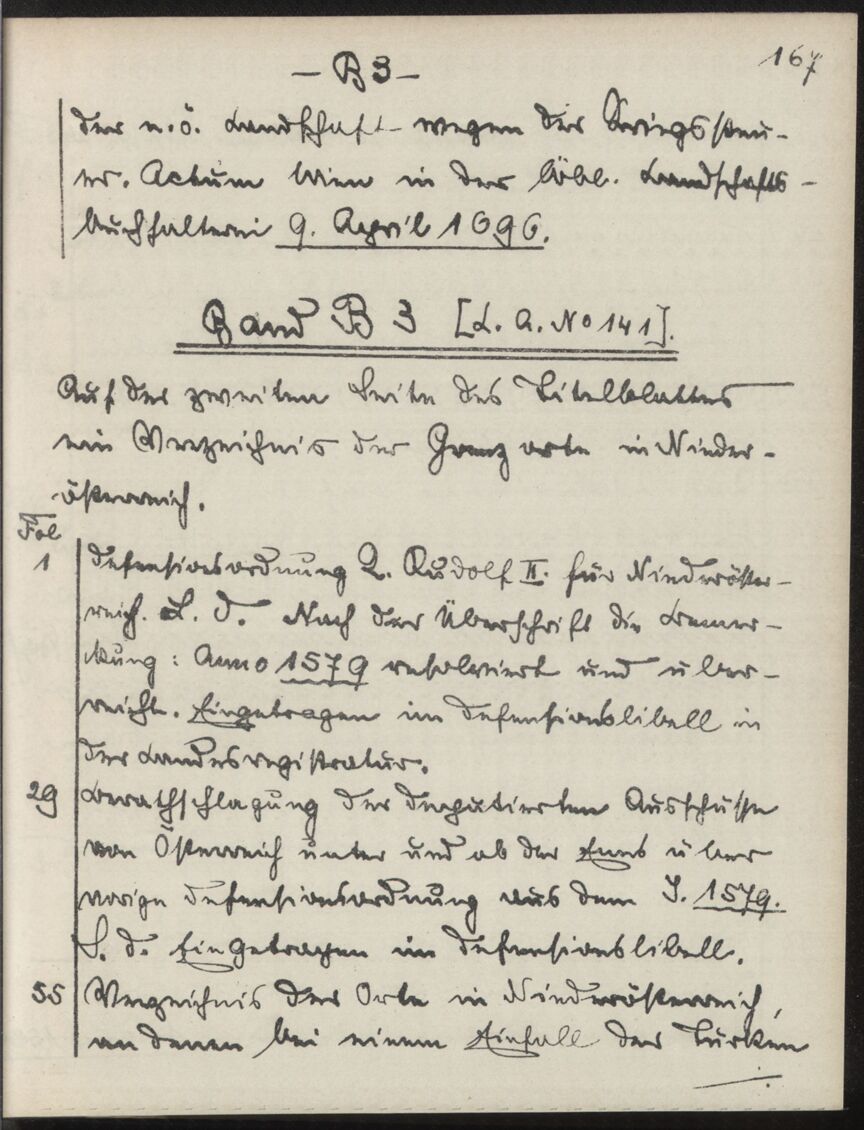 167
– B 3 –
der n. ö. Landschaft wegen der Kriegssteu-
er. Actum Wien in der löbl. Landschafts-
buchhalterei 9. April 1696.
Band B 3 [L. A. No 141].
Auf der zweiten Seite des Titelblattes
ein Verzeichnis der Grenzorte in Nieder-
österreich.
Fol
1 Defensionsordnung K. Rudolf II. für Niederöster-
reich. S. d. Nach der Überschrift die Bemer-
kung: Anno 1579 resolviert und über-
reicht. Eingetragen im Defensionslibell in
der Landesregistratur.
29 Berathschlagung der deputierten Ausschüsse
von Österreich unter und ob der Enns über
vorige Defensionsordnung aus dem J. 1579.
S. d. Eingetragen im Defensionslibell.
55 Verzeichnis der Orte in Niederösterreich,
an denen bei einem Einfall der Türken
./.